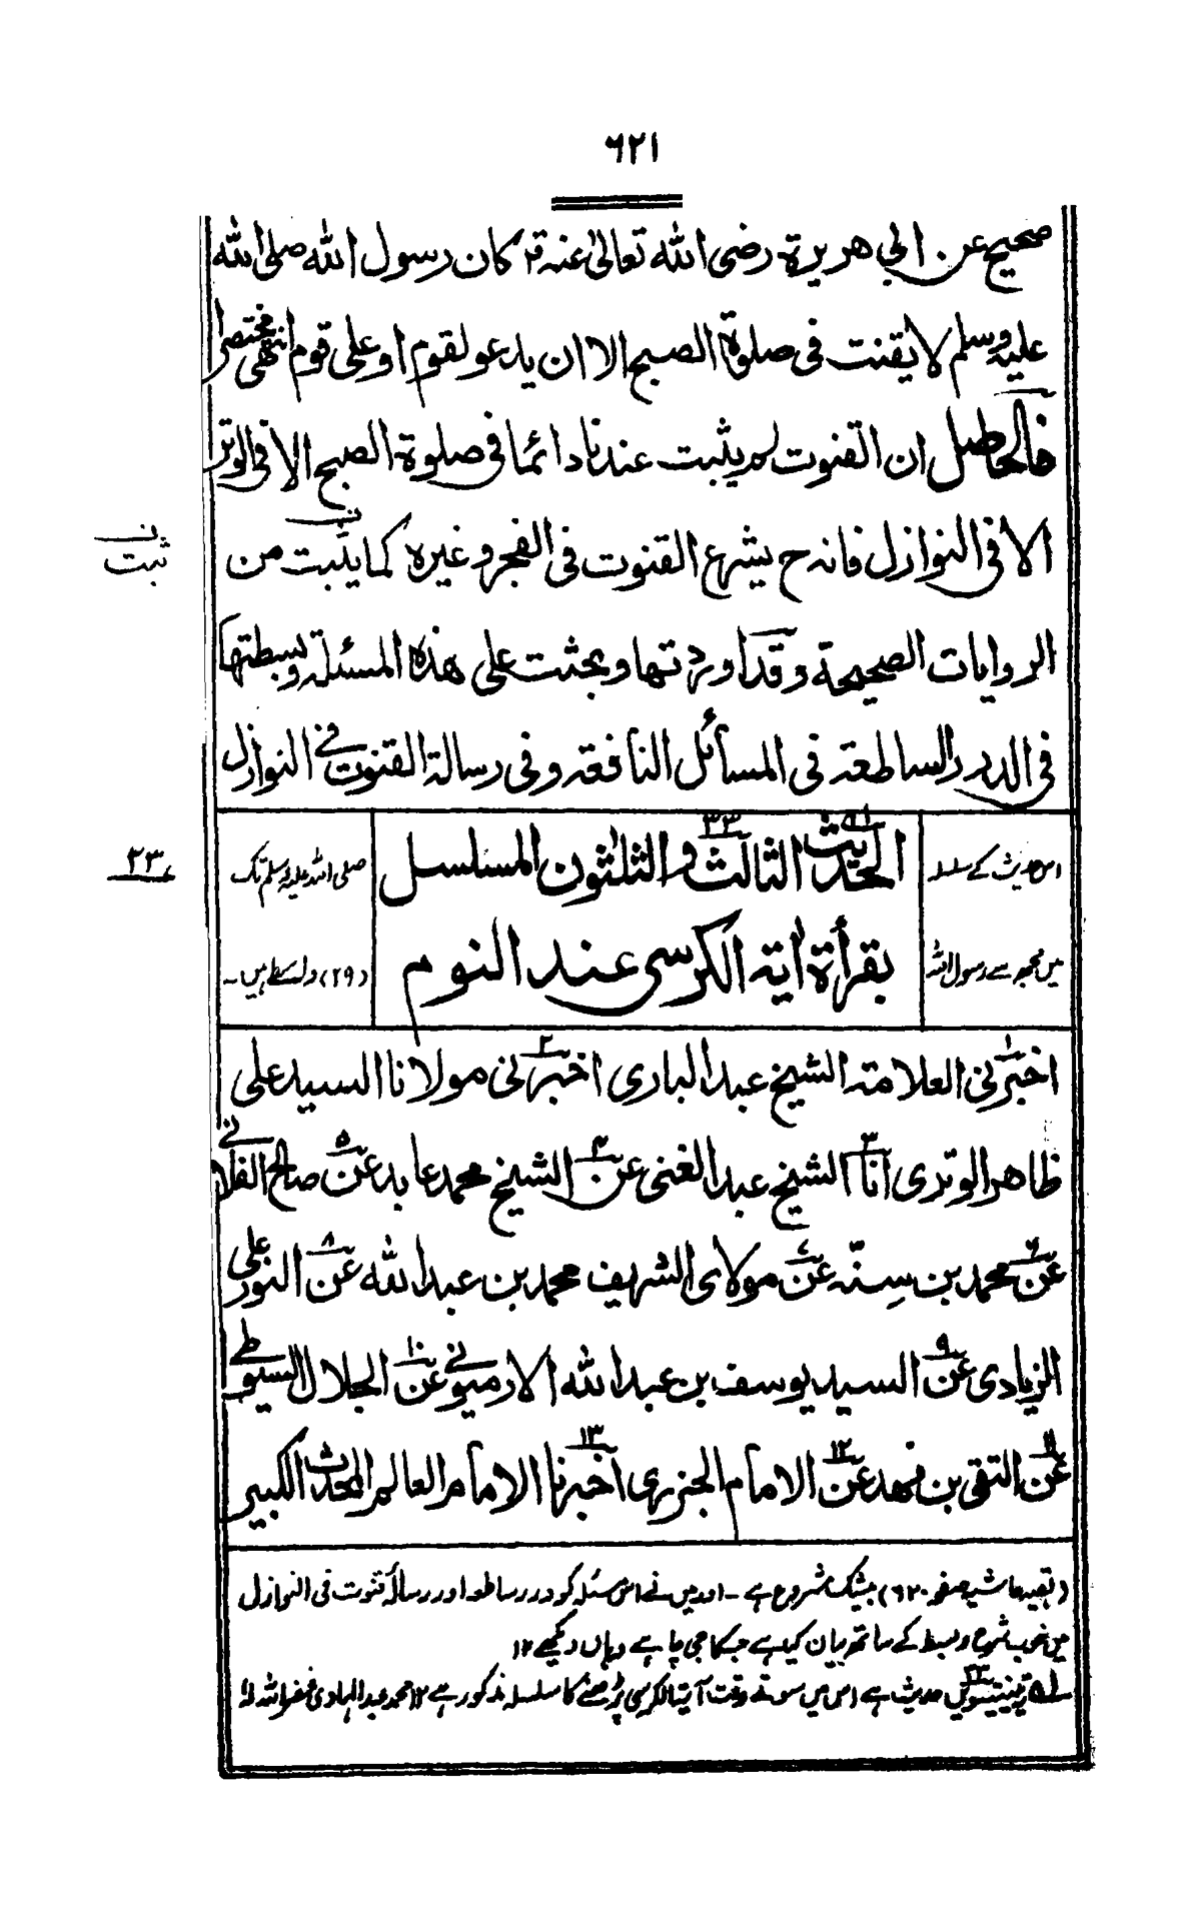 ٦٢١
صحیح عن ابی هریرة رضی الله تعالیٰ عنه قال کان رسول الله صلی الله
علیه وسلم لا یقنت فی صلوة الصبح الا ان یدعو لقوم او علی قوم انتهی مختصرا
فالحاصل ان القنوت لم یثبت عندنا دائما فی صلوة الصبح الا فی الوتر
الا فی النوازل فانه ح یشرع القنوت فی الفجر وغیره کما یثبت من
ن
ثبت
الروایات الصحیحة وقد اوردتها وبحثت علی هذه المسئلة وبسطتها
فی الدرر الساطعة فی المسائل النافعة وفی رسالة القنوت فی النوازل
اس حدیث کے سلسلہ
میں مجھ سے رسول اللہ
الحدیث الثالث والثلثون المسلسل ٣٣
بقرأة اٰیة الکرسی عند النوم
صلی اللہ علیہ وسلم تک
(٢٩) واسطے ہیں۔
٢٣
اخبرنی العلامة الشیخ عبد الباری اخبرنی مولانا السید علی
ظاهر الوتری انا الشیخ عبد الغنی عن الشیخ محمد عابد عن صالح الفلانی
عن محمد بن سنّه عن مولای الشریف محمد بن عبد الله عن النور علی
الزیادی عن السید یوسف بن عبد الله الارمیونی عن الجلال السیوطی
عن التقی بن فهد عن الامام الجزری اخبرنا الامام العالم المحدث الکبیر
(بقیہ حاشیہ صفحہ ٦٢٠) بیشک مشروع ہے ۔ اور میں نے اس مسئلہ کو درر ساطعہ اور رسالۂ قنوت فی النوازل
میں خوب شرح وبسط کے ساتھ بیان کیا ہے جسکا جی چاہے وہاں دیکھے ١٢
تینتیسویں حدیث ہے اس میں سوتے وقت آیۃ الکرسی پڑھنے کا سلسلہ مذکور ہے ١٢ محمد عبد الہادی غفر اللہ لہٗ